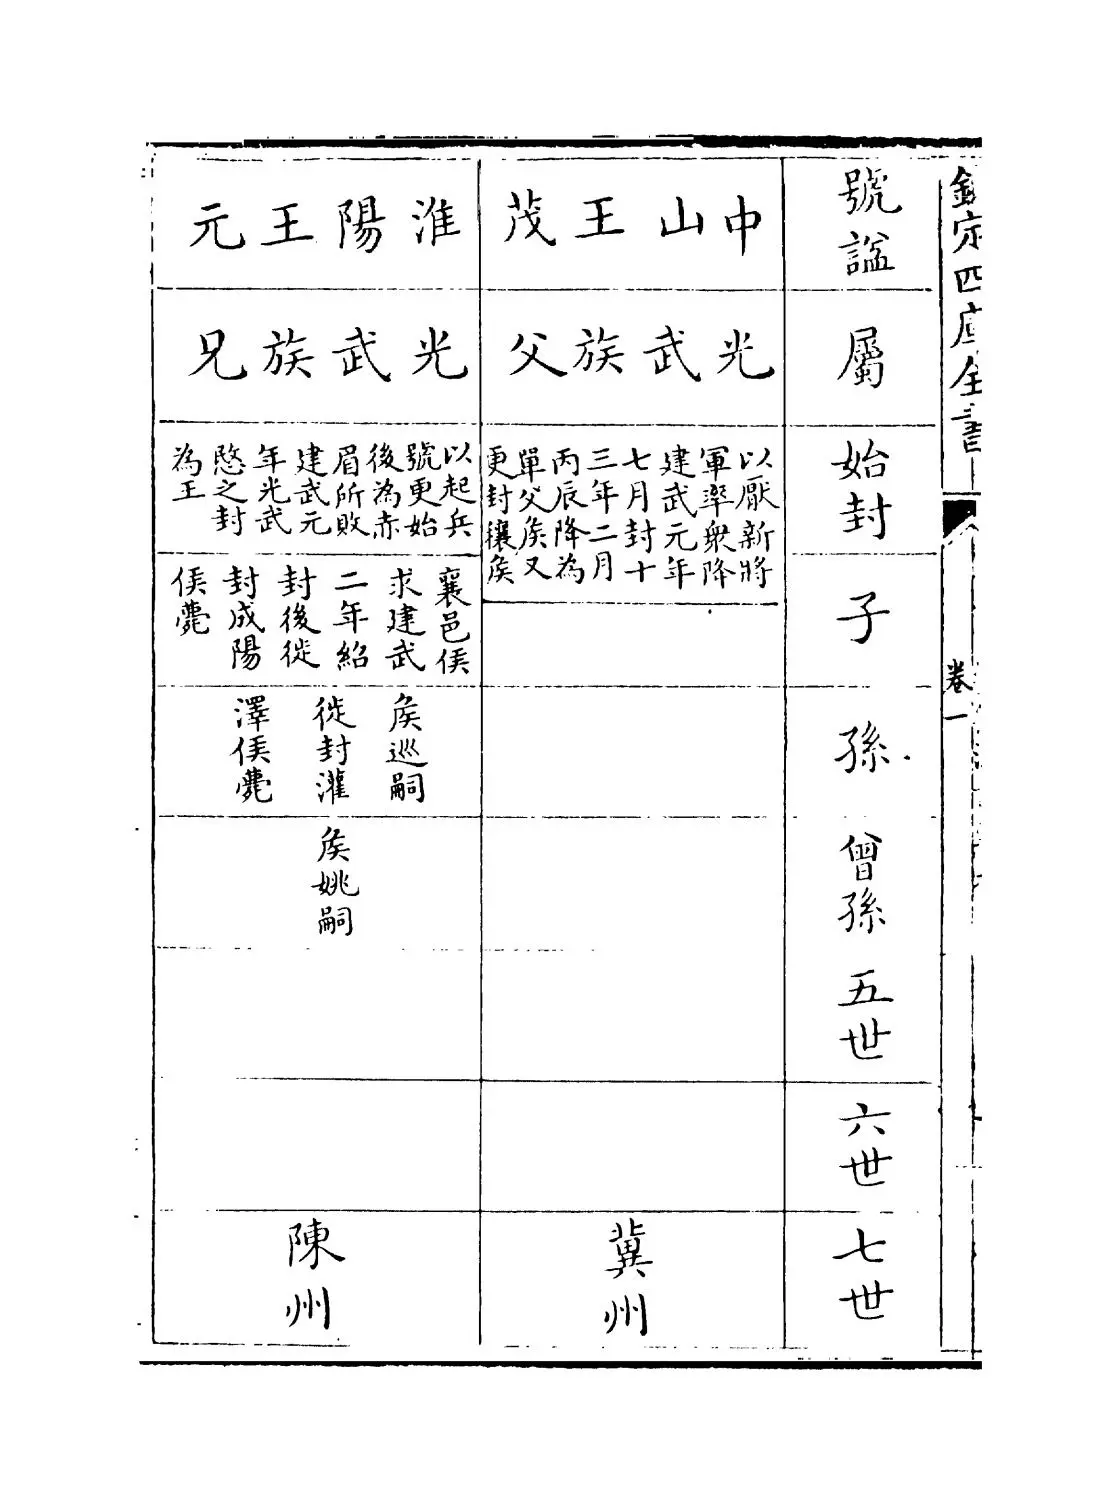 欽定四庫全書
卷一
號謚
屬
始封
子
孫
曾孫
五世
六世
七世
中山王茂
光武族父
以厭新將
軍率衆降
建武元年
七月封十
三年二月
丙辰降為
單父侯又
更封穰侯
冀州
淮陽王元
光武族兄
以起兵
號更始
後為赤
眉所敗
建武元
年光武
愍之封
為王
襄邑侯
求建武
二年紹
封後徙
封成陽
侯薨
侯巡嗣
徙封灌
澤侯薨
侯姚嗣
陳州